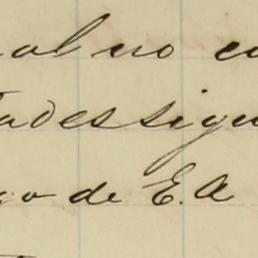 al no
ades sigu
go de E. A